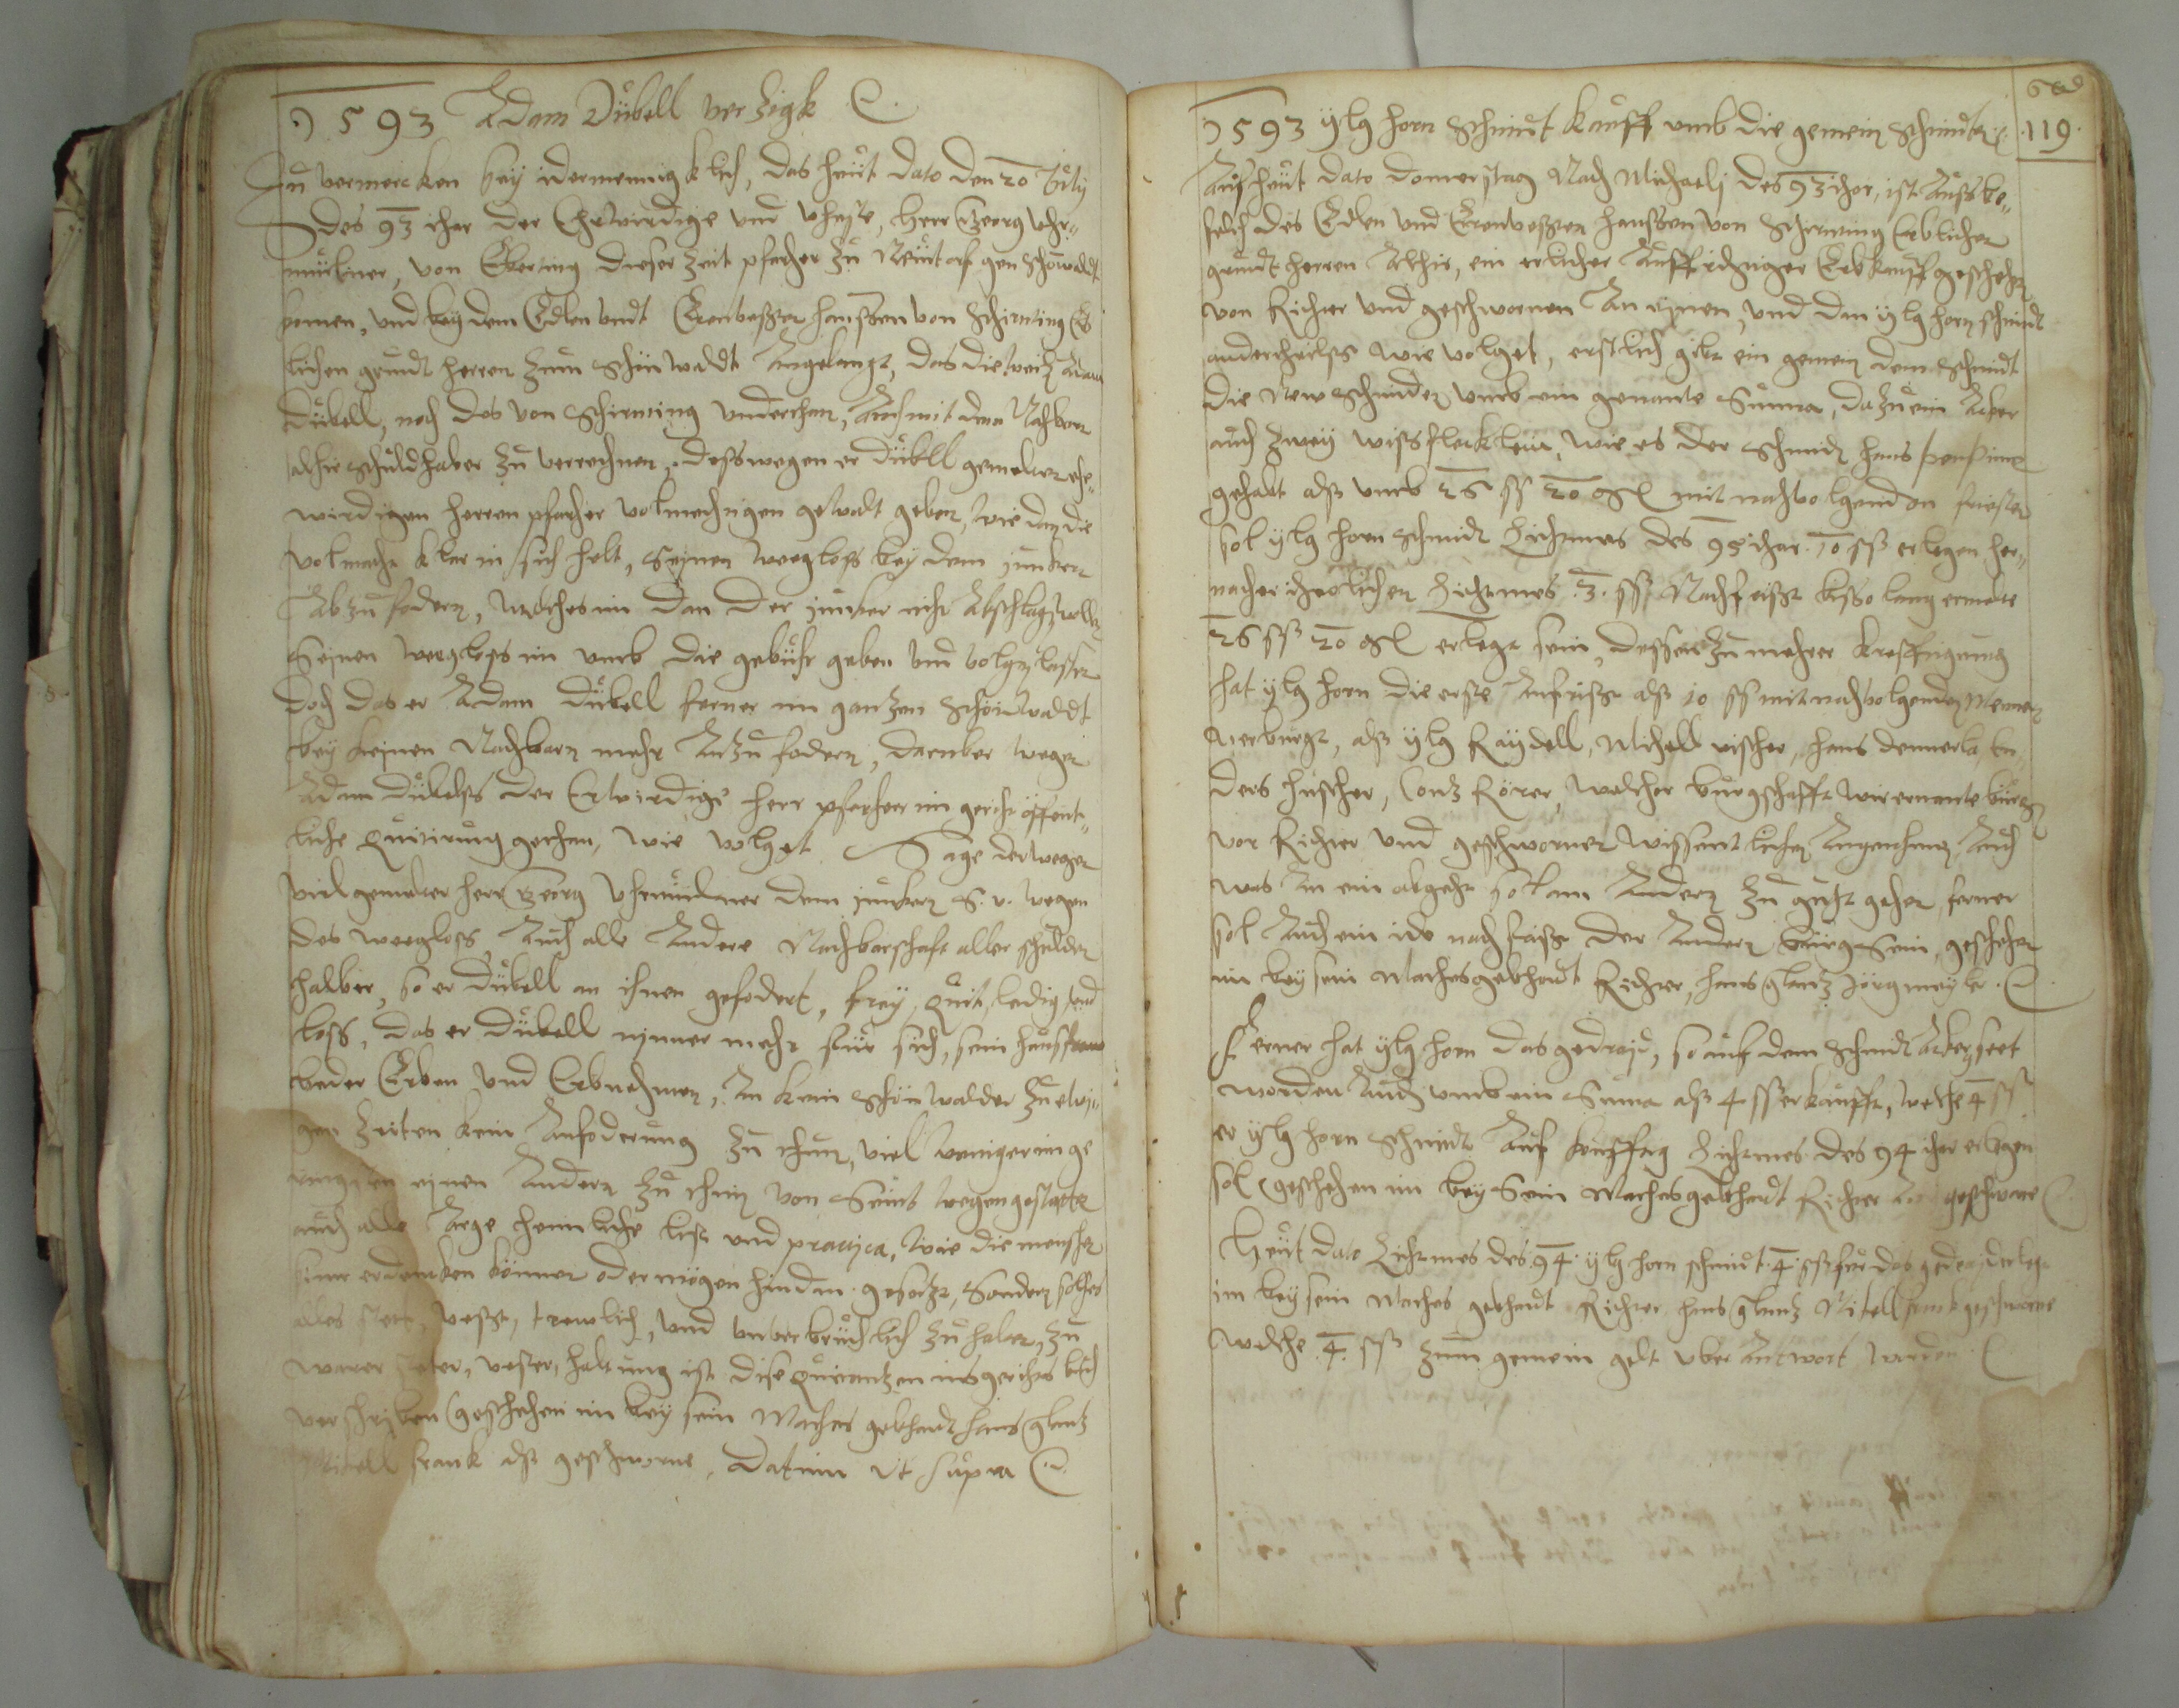 1593 Adam Dübell verzigk
Zu vermercken bey idermennigklich, das heut dato den 20 July
des 93 ihar der Ehrwirdige und, Herr Georg
müllner, von dieser zeit pfarher zu gen Schönwaldt
komen, und bey dem Edlen undt Ernvesten Hanßen von Schirnting Erb
lichen grundt herren zum Schönwaldt Angelangt, das dieweil Adam
Dübell, noch des von Schirnting underthan, Auch mit den Nachbern
alhie schuldhaber zu verrechnen, deßwegen er Dübell gemelten ehr
wirdigen herren pfarher volmechtigen gewalt geben, wie dan die
volmacht klar in sich helt, Seinen wegloß bey dem junkern
Abzufodern, welches im dan der junker nicht Abschlagen wellen
Seinen wegloß im umb die gebühr geben und volgen lassen
doch das er Adam Dübell ferner im ganzen Schönwaldt
bey keinen Nachbarn mehr Anzufodern, daruber wegen
Adam Dübelß der Erwirdige Herr pfarherr im gericht öffent
liche Quitirung gethan, wie volget Sage derwegen
vielgemelter Herr Georg dem junkern S. v. wegen
des wegloß, Auch alle Andere Nachbarschaft aller schulden
halber, so er Dübell an ihnen gefodert, frey, quit, ledig und
loß, das er Dübell nimmer mehr für sich, sein haußfraw
beder Erben und Erbnehmen, An kein Schönwalder zu ewi
gen zeiten kein Anfoderung zu thun, viel weniger
einen Andern zu thun von Seint wegen gestatte
auch alle Arge heimliche list und practica, wie die menschen
sinne erdencken können oder mögen hindan gesetzt, Sondern solches
alles stett, vest, trewlich, und unverbrüchlich zu halten, zu
warer steter, vester, haltung ist dise Quitantzen ins gerichts buch
verschriben geschehen im beysein Mathes gebhardt Hans glantz
Nickell frank alß geschworne, Datum Ut supra
119
1593 ylg horn Schmidt Kauff umb die gemein Schmidten
Auf heut dato donnerstag Nach Michaeli des 93 ihar, ist Auß be
felch des Edlen und Ernvesten Hanßen von Schirnting Erblichen
grundt herren Alhie, ein erlicher Auffrichtiger Erbkauff geschehen
von Richter und geschwornen An einen, und dan ylg horn schmidt
anderstheilß wie volget, erstlich gibt ein gemein dem Schmidt
die New Schmiden umb ein genante Summa, dazu ein Acker
auch zwey wißflecklein, wie es der Schmidt hans
gehabt alß umb 26 ß 20 gl mit nachvolgenden fristen
sol ylg horn schmidt Lichtmes des 95 ihar 10 ß erlegen her
nacher iherlichen Lichtmes 3 ß Nachfrist bißo lang ermelte
26 ß 20 gl erlegt sein, dessen zu mehrer Krefftigung
hat ylg horn die erste Anfrist alß 10 ß mit nachvolgenden Mennern
verbürgt, alß ylg Raydell, Michell vischer, hans dennerla, En
ders huscher, Contz Körer, welcher bürgschafft wir ernante bürgen
vor Richter und geschworner wissentlichen Angenhmen Auch
was An ein abgeht sol am Andern zu gutt gehen, ferner
sol Auch ein ide nachfrist der Andern bürg sein, geschehen
im beysein Mathes gebhardt Richter, hans glantz Jörg
Ferner hat ylg horn das gedraid, so auf dem Schmidt Acker seet
worden Auch umb ein Suma alß 4 ß erkaufft, welche 4 ß
er ylg horn Schmidt Auf künfftig Lichtmes des 94 ihar erlegen
sol geschehen im bey Sein Mathes gebhardt Richter geschworne
Heut dato Lichtmes des 94 ylg horn schmidt 4 ß für das gedraid erlegt
im beysein Mathes gebhardt Richter hans glantz Nickell frank geschworne
welche 4 ß zum gemein gelt uber Antwort worden